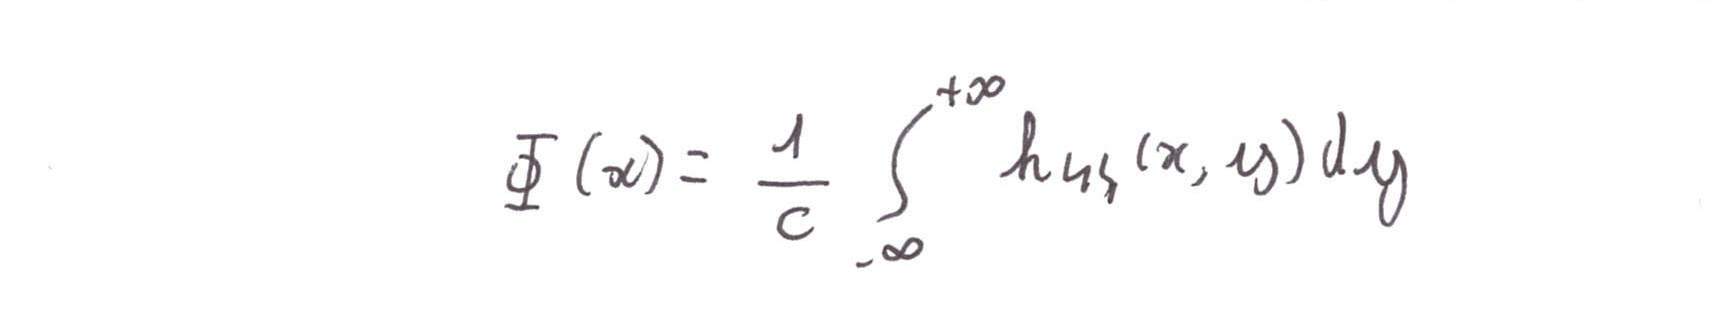 Φ(x) = \frac{1}{c} \int_{-\infty}^{+\infty} h_{44}(x, y) dy